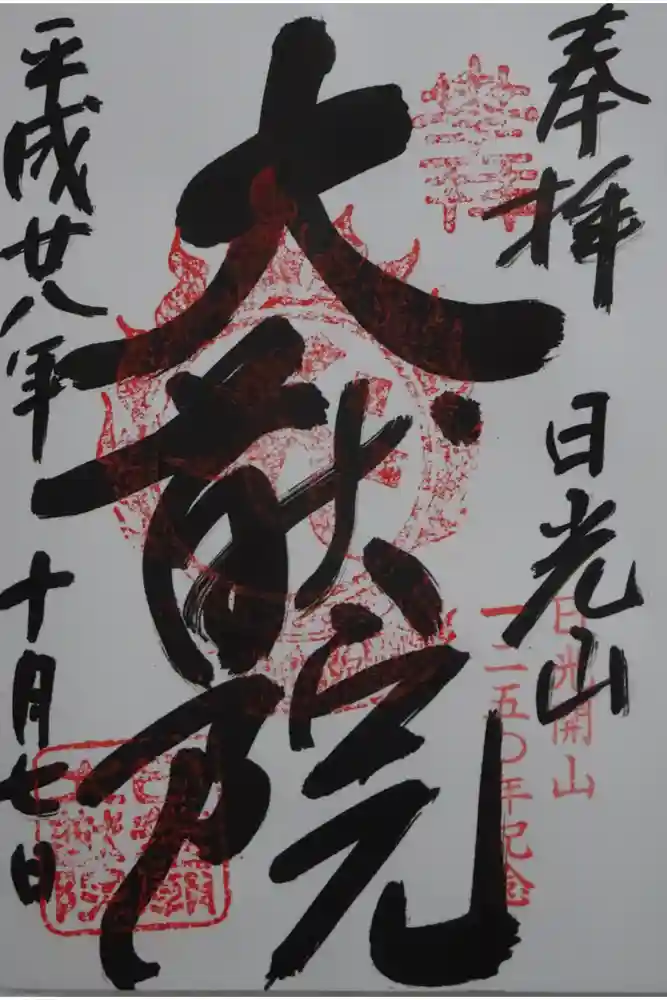 奉拝
日光山
日光開山
一二五〇年記念
大猷院
平成廿八年十月七日